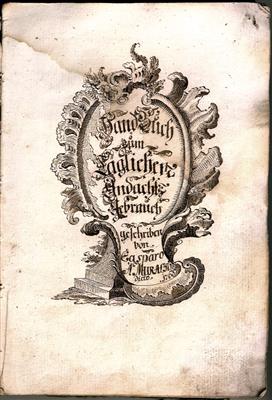 Hand Buch
zum
Täglichen
Andachts
Gebrauch
geschriben
von
Gasparo
A. MURALT